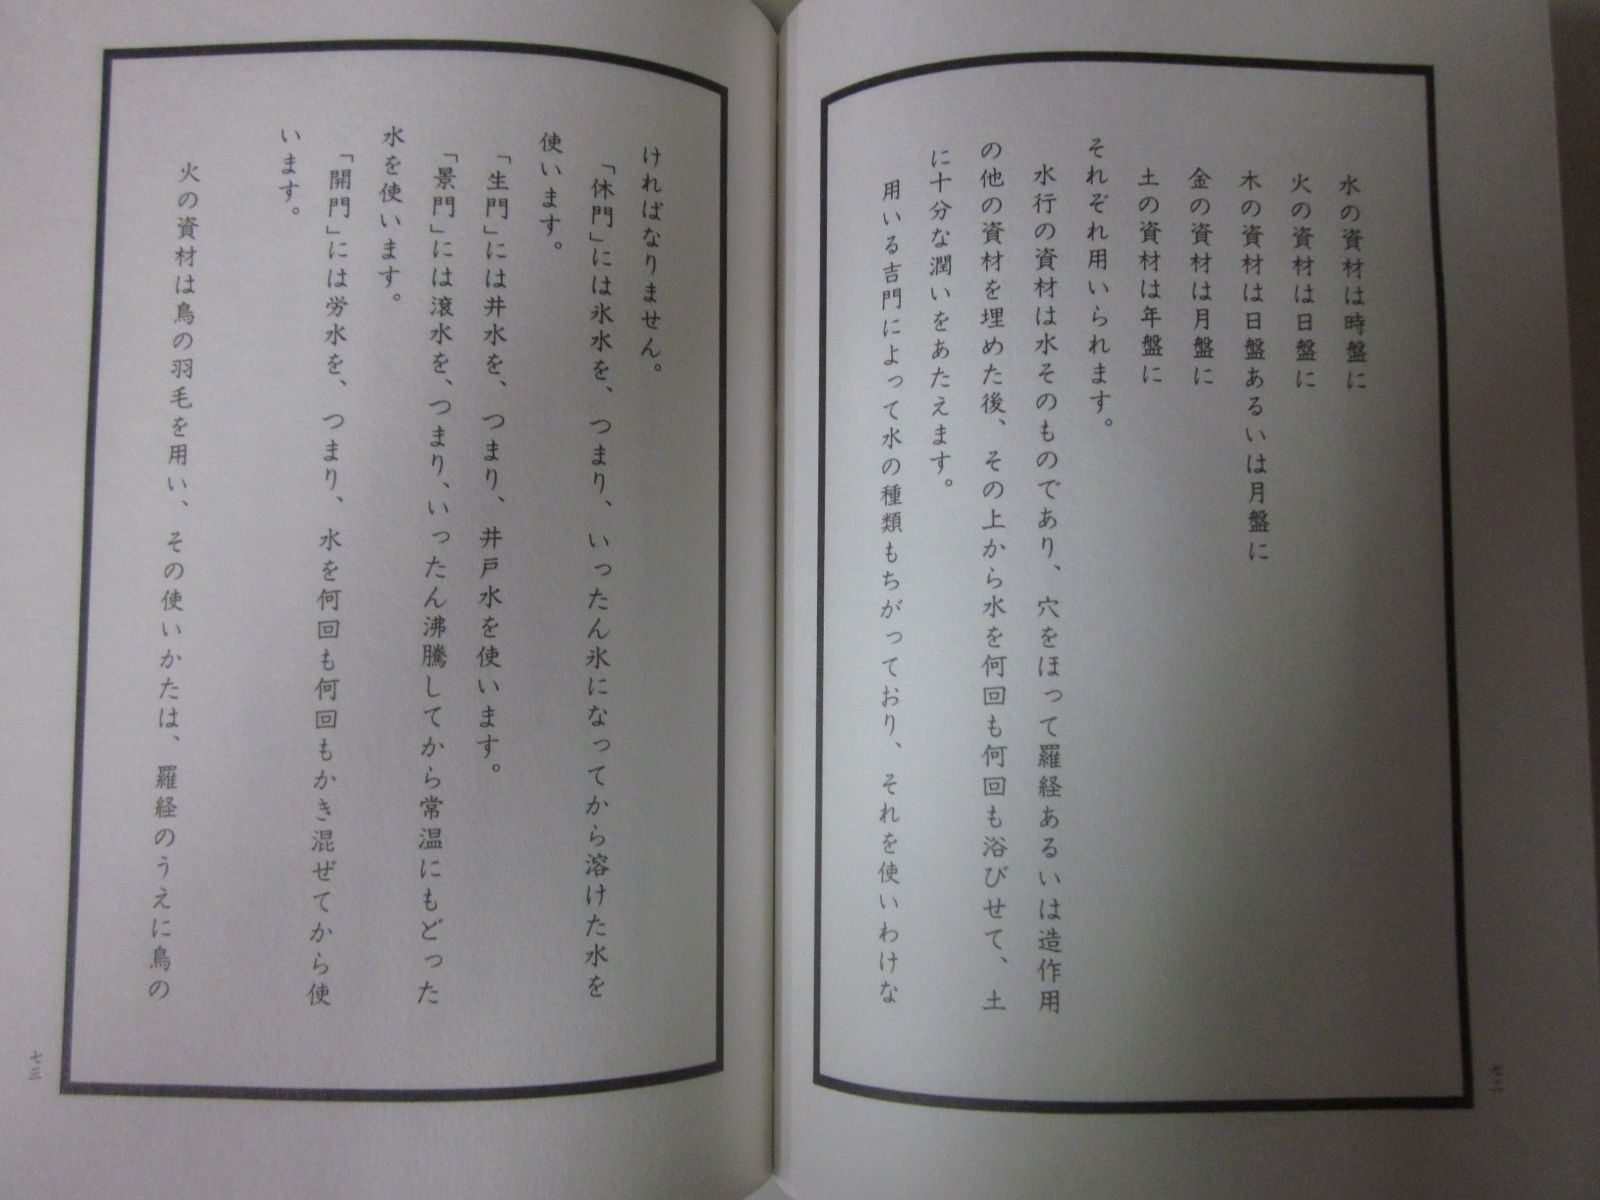 水の資材は時盤に
火の資材は日盤に
木の資材は日盤あるいは月盤に
金の資材は月盤に
土の資材は年盤に
それぞれ用いられます。
水行の資材は水そのものであり、穴をほって羅経あるいは造作用
の他の資材を埋めた後、その上から水を何回も何回も浴びせて、土
に十分な潤いをあたえます。
用いる吉門によって水の種類もちがっており、それを使いわけな
七二
ければなりません。
「休門」には氷水を、つまり、いったん氷になってから溶けた水を
使います。
「生門」には井水を、つまり、井戸水を使います。
「景門」には滾水を、つまり、いったん沸騰してから常温にもどった
水を使います。
「開門」には労水を、つまり、水を何回も何回もかき混ぜてから使
います。
火の資材は鳥の羽毛を用い、その使いかたは、羅経のうえに鳥の
七三